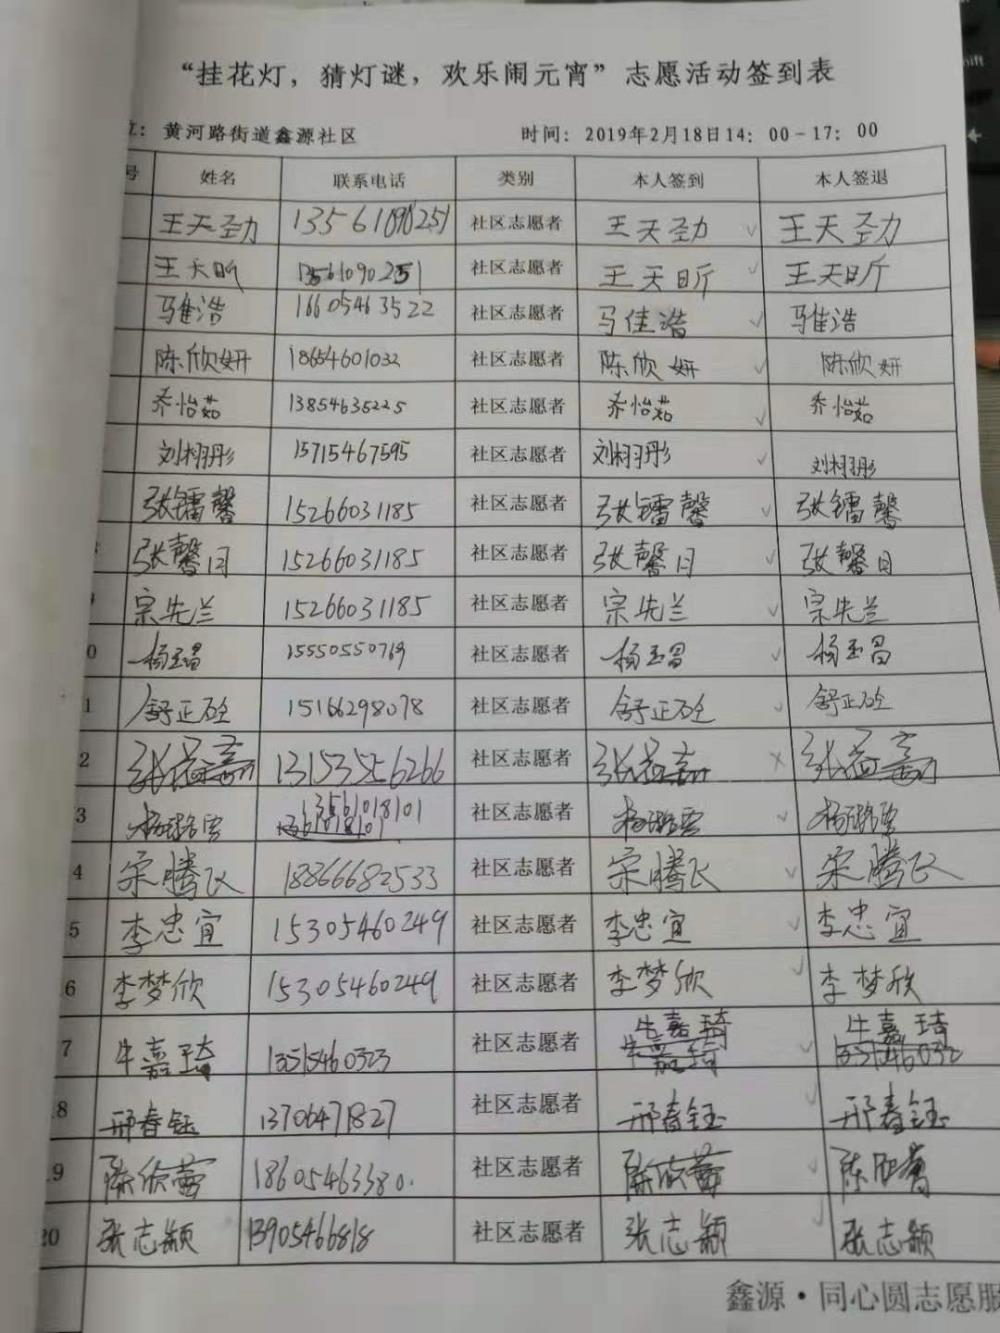 “挂花灯，猜灯谜，欢乐闹元宵”志愿活动签到表
：黄河路街道鑫源社区 时间：2019年2月18日14：00-17：00
号 姓名 联系电话 类别 本人签到 本人签退
王天劲 社区志愿者 王天劲 ✓ 王天劲
王天昕 13561090251 社区志愿者 王天昕 ✓ 王天昕
马佳浩 16605463522 社区志愿者 马佳浩 ✓ 马佳浩
陈欣妍 18654601032 社区志愿者 陈欣妍 ✓ 陈欣妍
乔怡茹 13854635225 社区志愿者 乔怡茹 ✓ 乔怡茹
刘栩彤 15715467595 社区志愿者 刘栩彤 ✓ 刘栩彤
张镭馨 15266031185 社区志愿者 张镭馨 ✓ 张镭馨
张馨月 15266031185 社区志愿者 张馨月 ✓ 张馨月
9 宗先兰 15266031185 社区志愿者 宗先兰 ✓ 宗先兰
0 杨玉昌 15550550769 社区志愿者 杨玉昌 ✓ 杨玉昌
1 舒正 15166298078 社区志愿者 舒正 ✓ 舒正
2 张益嘉 13153556266 社区志愿者 张益嘉 × 张益嘉
3 杨璐雲 13561018101 社区志愿者 杨璐雲 ✓ 杨璐雲
4 宋腾飞 18866682533 社区志愿者 宋腾飞 ✓ 宋腾飞
5 李忠宜 15305460249 社区志愿者 李忠宜 ✓ 李忠宜
6 李梦欣 15305460249 社区志愿者 李梦欣 ✓ 李梦欣
7 牛嘉琦 13515460323 社区志愿者 牛嘉琦 ✓ 牛嘉琦
8 邢春钰 13706471827 社区志愿者 邢春钰 ✓ 邢春钰
9 陈欣 18605463380 社区志愿者 陈欣 ✓ 陈
20 张志颖 13905466818 社区志愿者 张志颖 ✓ 张志颖
鑫源·同心圆志愿服